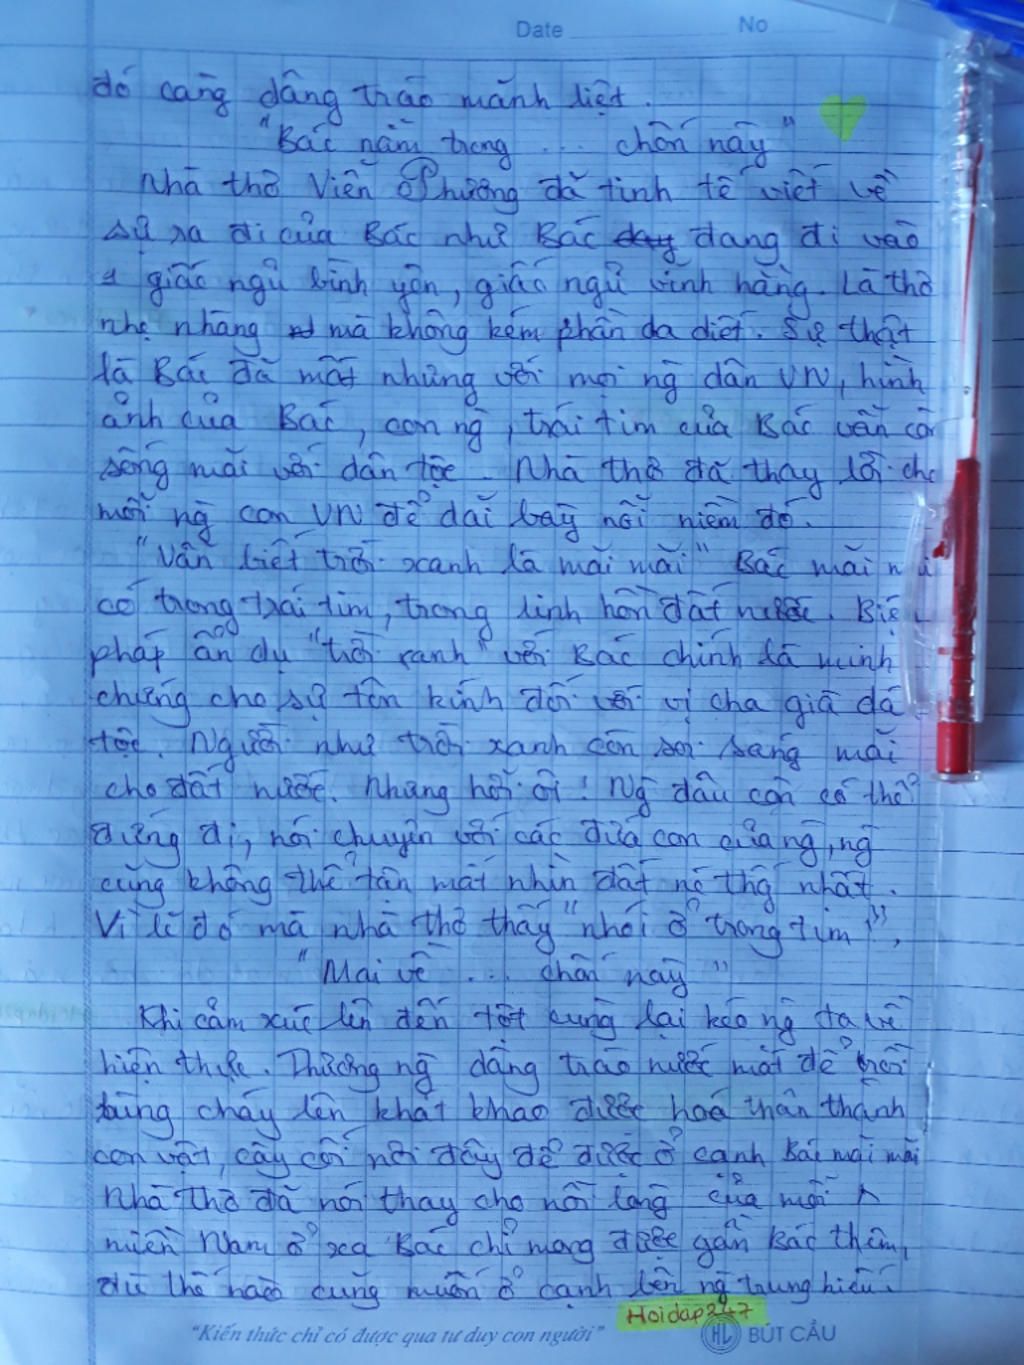 Date No
đó càng dâng trào mãnh liệt.
"Bác nằm trong ... chốn này"
Nhà thơ Viễn Phương đã tinh tế viết về
sự ra đi của Bác như Bác đang đi vào
1 giấc ngủ bình yên, giấc ngủ vĩnh hằng. Là thơ
nhẹ nhàng mà không kém phần da diết. Sự thật
là Bác đã mất nhưng với mọi ng dân VN, hình
ảnh của Bác, con ng, trái tim của Bác vẫn còn
sống mãi với dân tộc. Nhà thơ đã thay lời cho
mỗi ng con VN để dãi bày nỗi niềm đó.
"Vẫn biết trời xanh là mãi mãi" Bác mãi
có trong trái tim, trong linh hồn đất nước. Biện
pháp ẩn dụ "trời xanh" với Bác chính là minh
chứng cho sự tôn kính đối với vị cha già dâ
tộc. Người như trời xanh còn soi sáng mãi
cho đất nước. Nhưng hỡi ôi! Ng đâu còn có thể
đứng đi, nói chuyện với các đứa con của ng, ng
cũng không thể tận mắt nhìn đất nc thống nhất.
Vì lẽ đó mà nhà thơ thấy "nhói ở trong tim",
"Mai về ... chốn này"
Khi cảm xúc lên đến tột cùng lại kéo ng ta về
hiện thực. Thương ng dâng trào nước mắt để rồi
bùng cháy lên khát khao được hoá thân thành
con vật, cây cối nơi đây để được ở cạnh Bác mãi mãi
Nhà thơ đã nói thay cho nỗi lòng của mỗi
miền Nam ở xa Bác chỉ mong được gần Bác thêm,
dù thế nào cũng muốn ở cạnh bên ng trung hiếu.
Hoidap247
"Kiến thức chỉ có được qua tư duy con người" HL BÚT CẦU